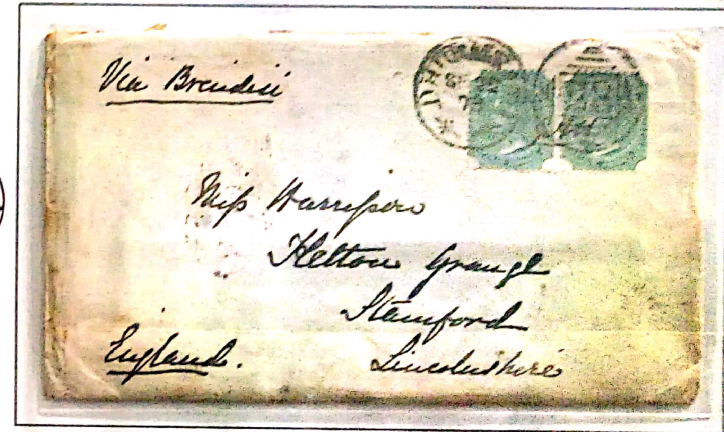 Via Brindisi
Miss Harrison
Ketton Grange
Stamford
Lincolnshire
England.